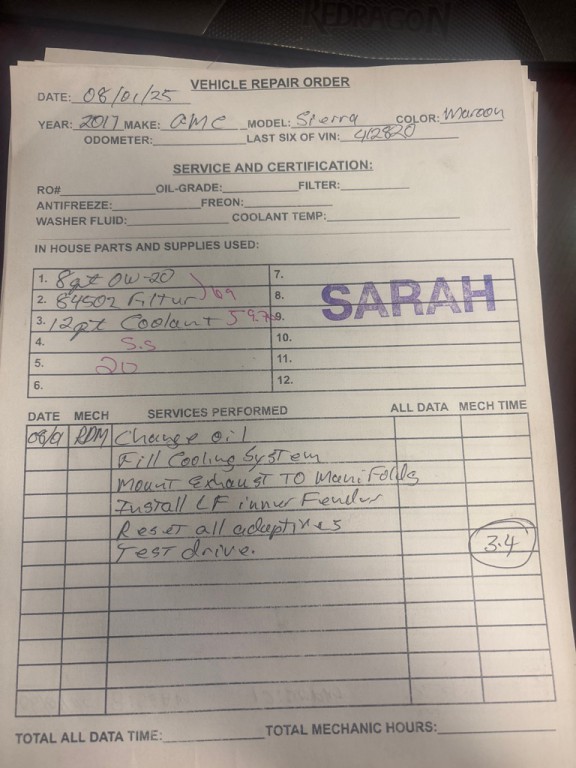 REDRAGON
VEHICLE REPAIR ORDER
DATE: 08/01/25
YEAR: 2017 MAKE: GMC MODEL: Sierra COLOR: Maroon
ODOMETER: LAST SIX OF VIN: 412820
SERVICE AND CERTIFICATION:
RO# OIL-GRADE: FILTER:
ANTIFREEZE: FREON:
WASHER FLUID: COOLANT TEMP:
IN HOUSE PARTS AND SUPPLIES USED:
1. 8qt OW-20 7.
2. 84502 Filtur 69 8.
3. 12pt Coolant 59.76 9.
SARAH
4. S.S 10.
5. 20 11.
6. 12.
DATE MECH SERVICES PERFORMED ALL DATA MECH TIME
08/01 RDM Change oil
Fill Cooling System
Mount Exhaust To Manifolds
Install LF inner Fender
Reset all adaptives
Test drive. 3.4
TOTAL ALL DATA TIME: TOTAL MECHANIC HOURS: